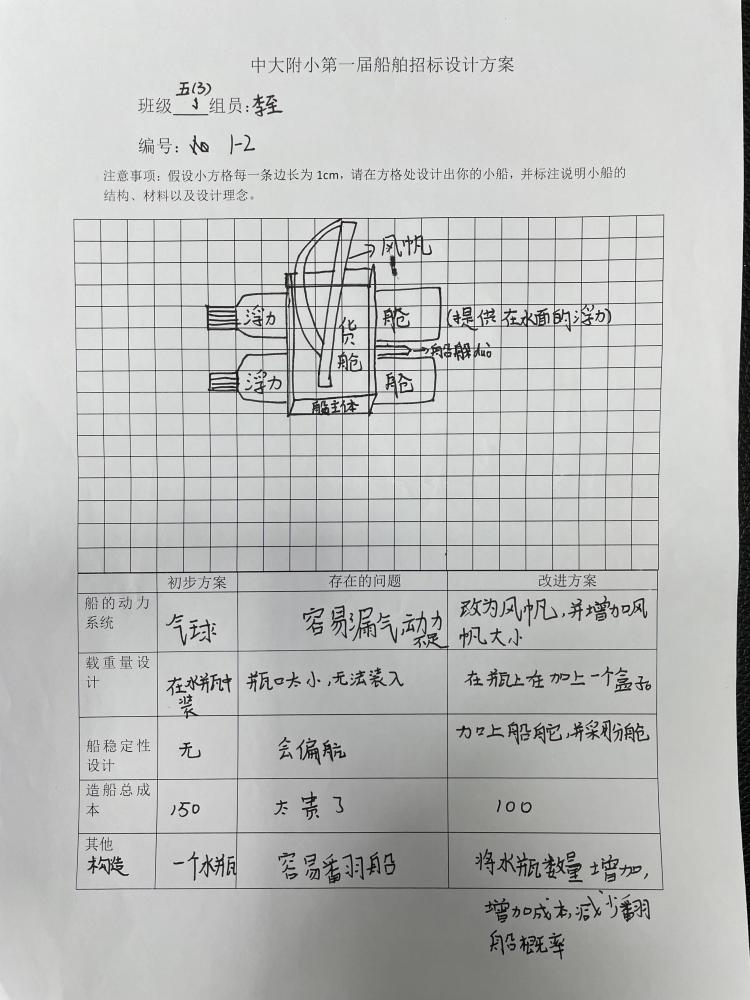 中大附小第一届船舶招标设计方案
班级 五(3) 组员:李至
编号: 1-2
注意事项：假设小方格每一条边长为1cm，请在方格处设计出你的小船，并标注说明小船的
结构、材料以及设计理念。
风帆
浮力 货舱 舱 (提供在水面的浮力)
船舵duò
浮力 舱
船主体
初步方案 存在的问题 改进方案
船的动力系统 气球 容易漏气,动力不足 改为风帆,并增加风帆大小
载重量设计 在水瓶中装 瓶口太小,无法装入 在瓶上在加上一个盒子。
船稳定性设计 无 会偏航 加上船舵,并采取分舱
造船总成本 150 太贵了 100
其他构造 一个水瓶 容易番羽船 将水瓶数量增加,
增加成本,减少翻
船概率